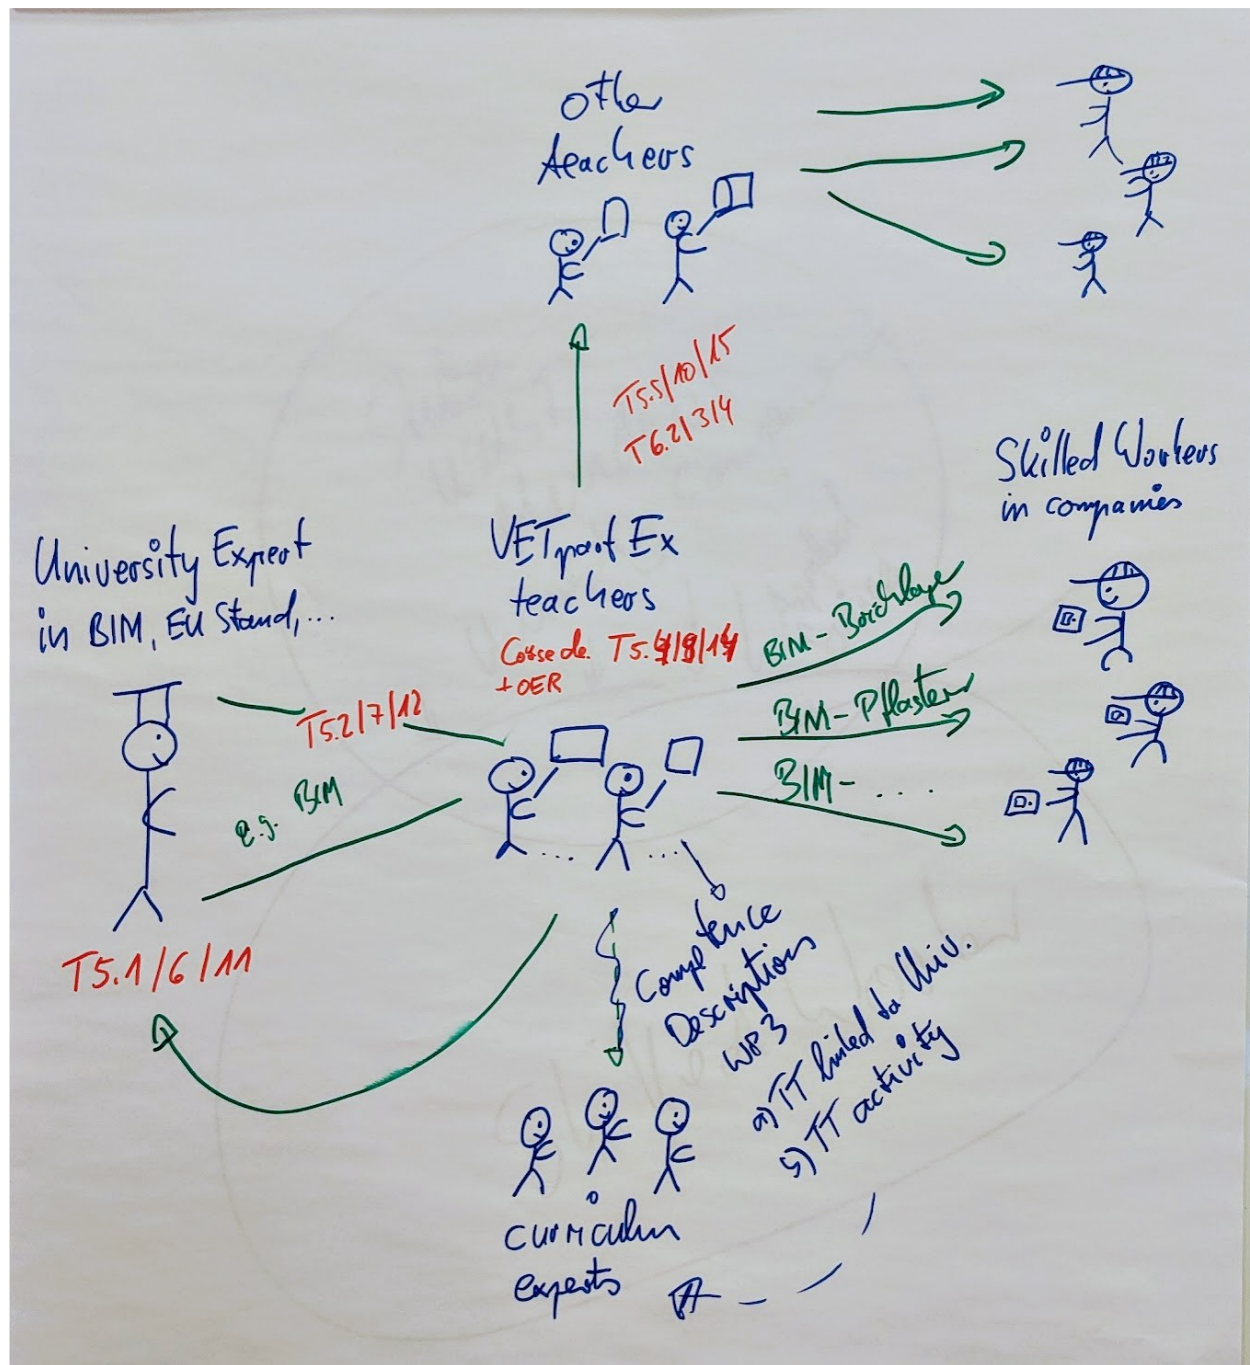 other
teachers
T5.5/10/15
T6.2/3/4
Skilled Workers
in companies
University Expert
in BIM, EU Stand,...
VET Ex
teachers
T5.4/9/14
+ OER
BIM-
BIM-Pflaster
BIM-....
T5.2/7/12
e.g. BIM
T5.1/6/11
.... ....
Competence
Descriptions
WP3
a) TT linked to Univ.
b) TT activity
curriculum
experts